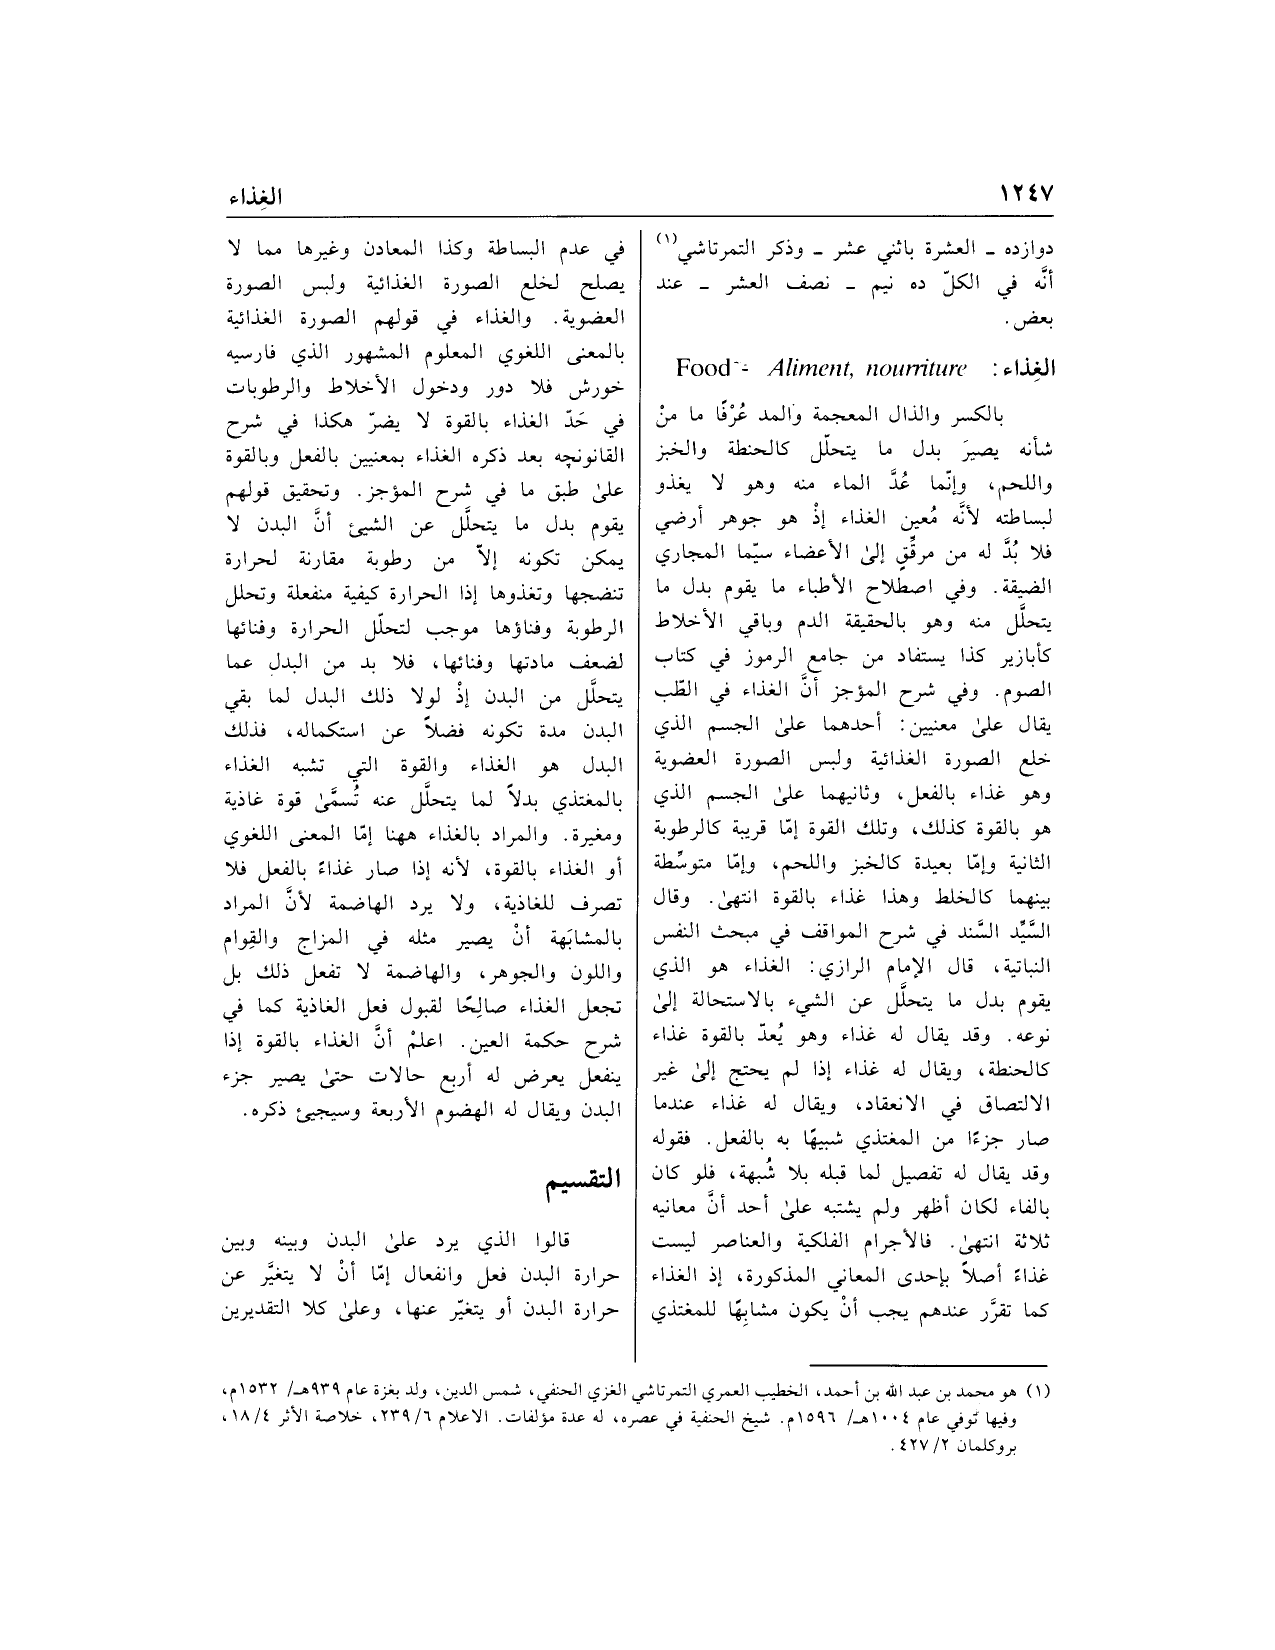 ١٢٤٧
الغِذاء
دوازده ـ العشرة باثني عشر ـ وذكر التمرتاشي(١)
أنَّه في الكلّ ده نيم ـ نصف العشر ـ عند
بعض.
الغِذاء: Food - Aliment, nourriture
بالكسر والذال المعجمة والمد عُرْفًا ما منْ
شأنه يصيرَ بدل ما يتحلّل كالحنطة والخبز
واللحم، وإنّما عُدَّ الماء منه وهو لا يغذو
لبساطته لأنَّه مُعين الغذاء إذْ هو جوهر أرضي
فلا بُدَّ له من مرقِّقٍ إلىٰ الأعضاء سيّما المجاري
الضيقة. وفي اصطلاح الأطباء ما يقوم بدل ما
يتحلَّل منه وهو بالحقيقة الدم وباقي الأخلاط
كأبازير كذا يستفاد من جامع الرموز في كتاب
الصوم. وفي شرح المؤجز أنَّ الغذاء في الطّب
يقال علىٰ معنيين: أحدهما علىٰ الجسم الذي
خلع الصورة الغذائية ولبس الصورة العضوية
وهو غذاء بالفعل، وثانيهما علىٰ الجسم الذي
هو بالقوة كذلك، وتلك القوة إمّا قريبة كالرطوبة
الثانية وإمّا بعيدة كالخبز واللحم، وإمّا متوسِّطة
بينهما كالخلط وهذا غذاء بالقوة انتهىٰ. وقال
السَّيِّد السَّند في شرح المواقف في مبحث النفس
النباتية، قال الإمام الرازي: الغذاء هو الذي
يقوم بدل ما يتحلَّل عن الشيء بالاستحالة إلىٰ
نوعه. وقد يقال له غذاء وهو يُعدّ بالقوة غذاء
كالحنطة، ويقال له غذاء إذا لم يحتج إلىٰ غير
الالتصاق في الانعقاد، ويقال له غذاء عندما
صار جزءًا من المغتذي شبيهًا به بالفعل. فقوله
وقد يقال له تفصيل لما قبله بلا شُبهة، فلو كان
بالفاء لكان أظهر ولم يشتبه علىٰ أحد أنَّ معانيه
ثلاثة انتهىٰ. فالأجرام الفلكية والعناصر ليست
غذاءً أصلاً بإحدى المعاني المذكورة، إذ الغذاء
كما تقرَّر عندهم يجب أنْ يكون مشابِهًا للمغتذي
في عدم البساطة وكذا المعادن وغيرها مما لا
يصلح لخلع الصورة الغذائية ولبس الصورة
العضوية. والغذاء في قولهم الصورة الغذائية
بالمعنى اللغوي المعلوم المشهور الذي فارسيه
خورش فلا دور ودخول الأخلاط والرطوبات
في حَدّ الغذاء بالقوة لا يضرّ هكذا في شرح
القانونچه بعد ذكره الغذاء بمعنيين بالفعل وبالقوة
علىٰ طبق ما في شرح المؤجز. وتحقيق قولهم
يقوم بدل ما يتحلَّل عن الشيئ أنَّ البدن لا
يمكن تكونه إلاّ من رطوبة مقارنة لحرارة
تنضجها وتغذوها إذا الحرارة كيفية منفعلة وتحلل
الرطوبة وفناؤها موجب لتحلّل الحرارة وفنائها
لضعف مادتها وفنائها، فلا بد من البدل عما
يتحلَّل من البدن إذْ لولا ذلك البدل لما بقي
البدن مدة تكونه فضلاً عن استكماله، فذلك
البدل هو الغذاء والقوة التي تشبه الغذاء
بالمغتذي بدلاً لما يتحلَّل عنه تُسمَّىٰ قوة غاذية
ومغيرة. والمراد بالغذاء ههنا إمّا المعنى اللغوي
أو الغذاء بالقوة، لأنه إذا صار غذاءً بالفعل فلا
تصرف للغاذية، ولا يرد الهاضمة لأنَّ المراد
بالمشابَهة أنْ يصير مثله في المزاج والقِوام
واللون والجوهر، والهاضمة لا تفعل ذلك بل
تجعل الغذاء صالِحًا لقبول فعل الغاذية كما في
شرح حكمة العين. اعلمْ أنَّ الغذاء بالقوة إذا
ينفعل يعرض له أربع حالات حتىٰ يصير جزء
البدن ويقال له الهضوم الأربعة وسيجيئ ذكره.
التقسيم
قالوا الذي يرد علىٰ البدن وبينه وبين
حرارة البدن فعل وانفعال إمّا أنْ لا يتغيَّر عن
حرارة البدن أو يتغيّر عنها، وعلىٰ كلا التقديرين
(١) هو محمد بن عبد الله بن أحمد، الخطيب العمري التمرتاشي الغزي الحنفي، شمس الدين، ولد بغزة عام ٩٣٩هـ/ ١٥٣٢م،
وفيها تُوفي عام ١٠٠٤هـ/ ١٥٩٦م. شيخ الحنفية في عصره، له عدة مؤلفات. الاعلام ٦/ ٢٣٩، خلاصة الأثر ٤/ ١٨،
بروكلمان ٢/ ٤٢٧.